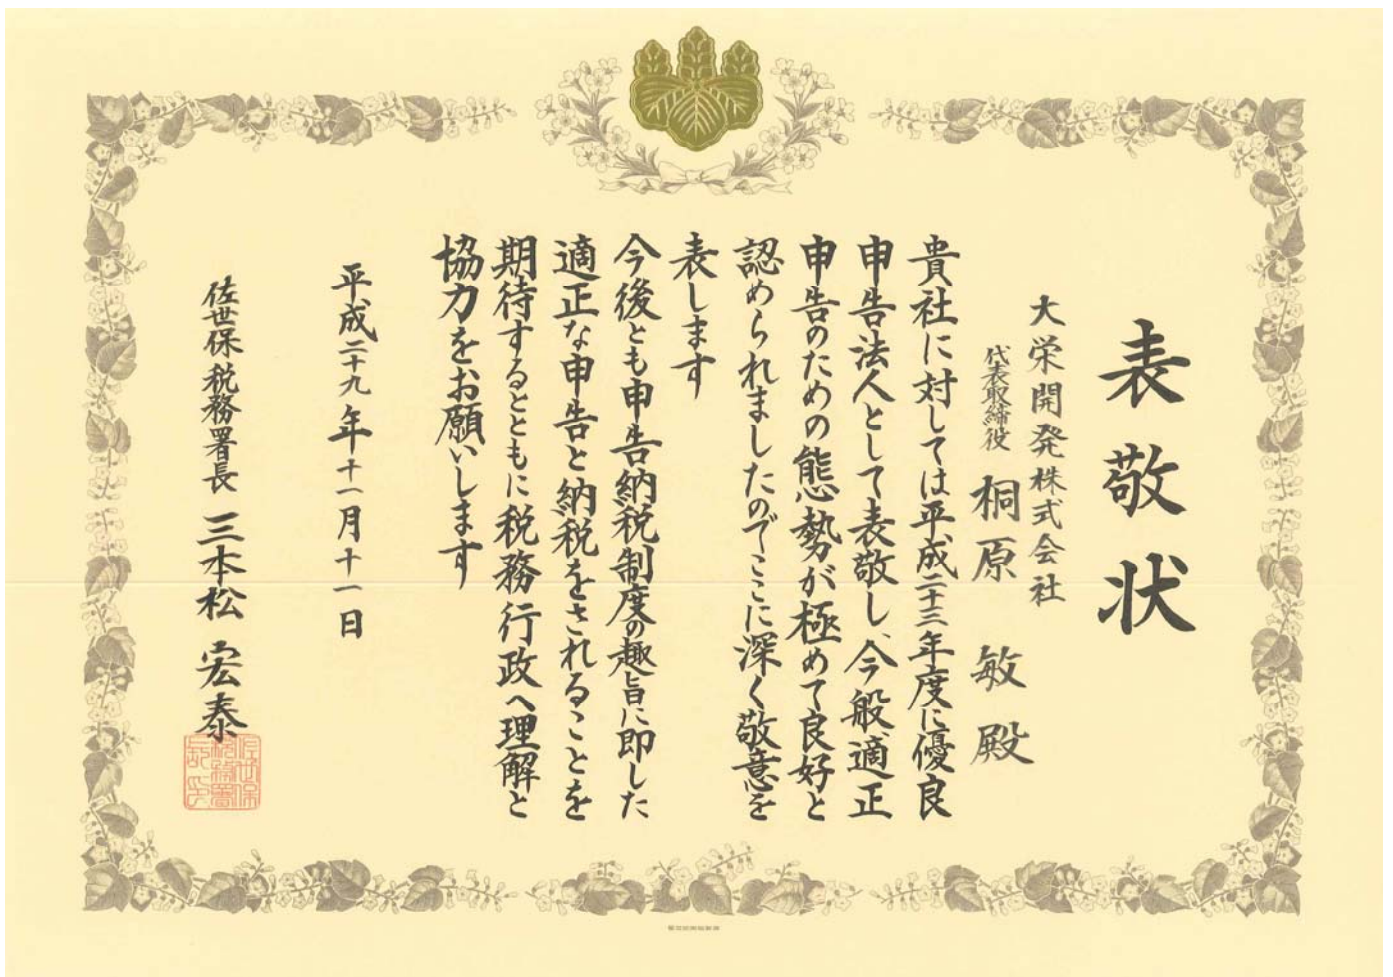 表敬状
大栄開発株式会社
代表取締役 桐原 敏 殿
貴社に対しては平成二十三年度に優良
申告法人として表敬し、今般適正
申告のための態勢が極めて良好と
認められましたのでここに深く敬意を
表します
今後とも申告納税制度の趣旨に即した
適正な申告と納税をされることを
期待するとともに税務行政へ理解と
協力をお願いします
平成二十九年十一月十一日
佐世保税務署長 三本松 宏泰
佐世保
税務署
長印